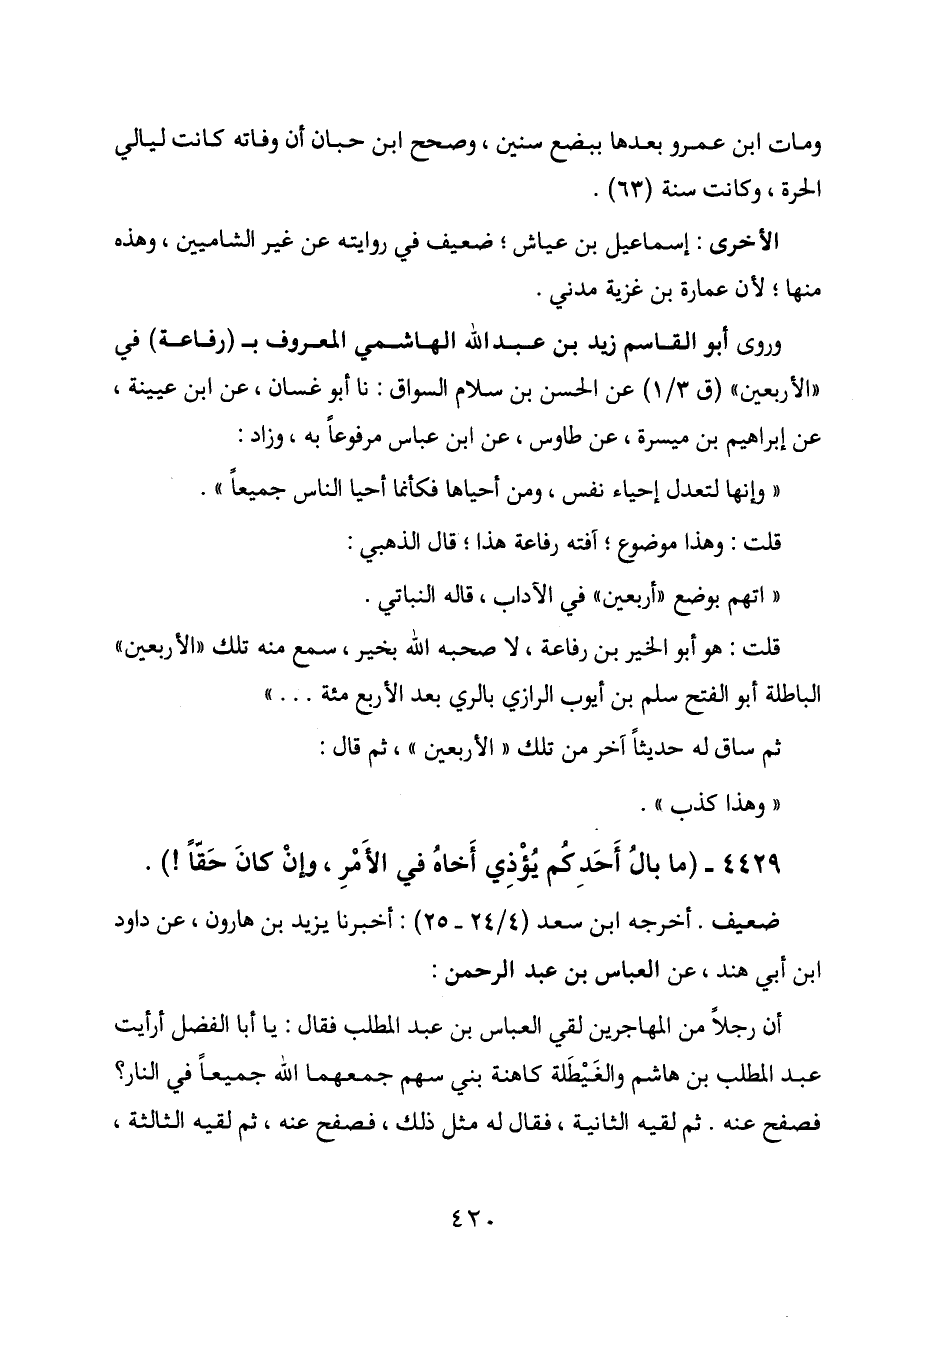 ومات ابن عمرو بعدها ببضع سنين ، وصحح ابن حبان أن وفاته كانت ليالي
الحرة ، وكانت سنة (٦٣) .
الأخرى : إسماعيل بن عياش ؛ ضعيف في روايته عن غير الشاميين ، وهذه
منها ؛ لأن عمارة بن غزية مدني .
وروى أبو القاسم زيد بن عبدالله الهاشمي المعروف بـ (رفاعة) في
«الأربعين» (ق ١/٣) عن الحسن بن سلام السواق : نا أبو غسان ، عن ابن عيينة ،
عن إبراهيم بن ميسرة ، عن طاوس ، عن ابن عباس مرفوعاً به ، وزاد :
« وإنها لتعدل إحياء نفس ، ومن أحياها فكأنما أحيا الناس جميعاً » .
قلت : وهذا موضوع ؛ آفته رفاعة هذا ؛ قال الذهبي :
« اتهم بوضع «أربعين» في الآداب ، قاله النباتي .
قلت : هو أبو الخير بن رفاعة ، لا صحبه الله بخير ، سمع منه تلك «الأربعين»
الباطلة أبو الفتح سلم بن أيوب الرازي بالري بعد الأربع مئة . . . »
ثم ساق له حديثاً آخر من تلك « الأربعين » ، ثم قال :
« وهذا كذب » .
٤٤٢٩ ـ (ما بالُ أَحَدِكُم يُؤْذِي أَخاهُ في الأَمْرِ ، وإنْ كانَ حَقّاً !) .
ضعيف . أخرجه ابن سعد (٢٤/٤ ـ ٢٥) : أخبرنا يزيد بن هارون ، عن داود
ابن أبي هند ، عن العباس بن عبد الرحمن :
أن رجلاً من المهاجرين لقي العباس بن عبد المطلب فقال : يا أبا الفضل أرأيت
عبد المطلب بن هاشم والغَيْطَلة كاهنة بني سهم جمعهما الله جميعاً في النار؟
فصفح عنه . ثم لقيه الثانية ، فقال له مثل ذلك ، فصفح عنه ، ثم لقيه الثالثة ،
٤٢٠